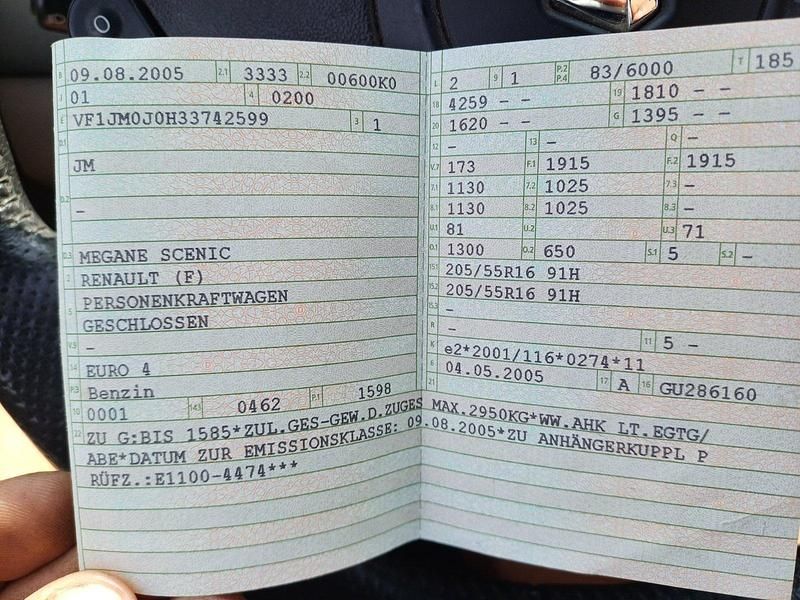 B 09.08.2005 2.1 3333 2.2 00600K0
J 01 4 0200
E VF1JM0J0H33742599 3 1
D.1
JM
D.2 -
D.3 MEGANE SCENIC
2 RENAULT (F)
5 PERSONENKRAFTWAGEN
GESCHLOSSEN
V.9 -
14 EURO 4
P.3 Benzin
10 0001 14.1 0462 P.1 1598
L 2 9 1 P.2 P.4 83/6000 T 185
18 4259 - - 19 1810 - -
20 1620 - - G 1395 - -
12 - 13 - Q -
V.7 173 F.1 1915 F.2 1915
7.1 1130 7.2 1025 7.3 -
8.1 1130 8.2 1025 8.3 -
U.1 81 U.2 U.3 71
O.1 1300 O.2 650 S.1 5 S.2 -
15.1 205/55R16 91H
15.2 205/55R16 91H
15.3 -
R - 11 5 -
K e2*2001/116*0274*11
6 04.05.2005 17 A 16 GU286160
21
22 ZU G:BIS 1585*ZUL.GES-GEW.D.ZUGES MAX.2950KG*WW.AHK LT.EGTG/
ABE*DATUM ZUR EMISSIONSKLASSE: 09.08.2005*ZU ANHÄNGERKUPPL P
RÜFZ.:E1100-4474***